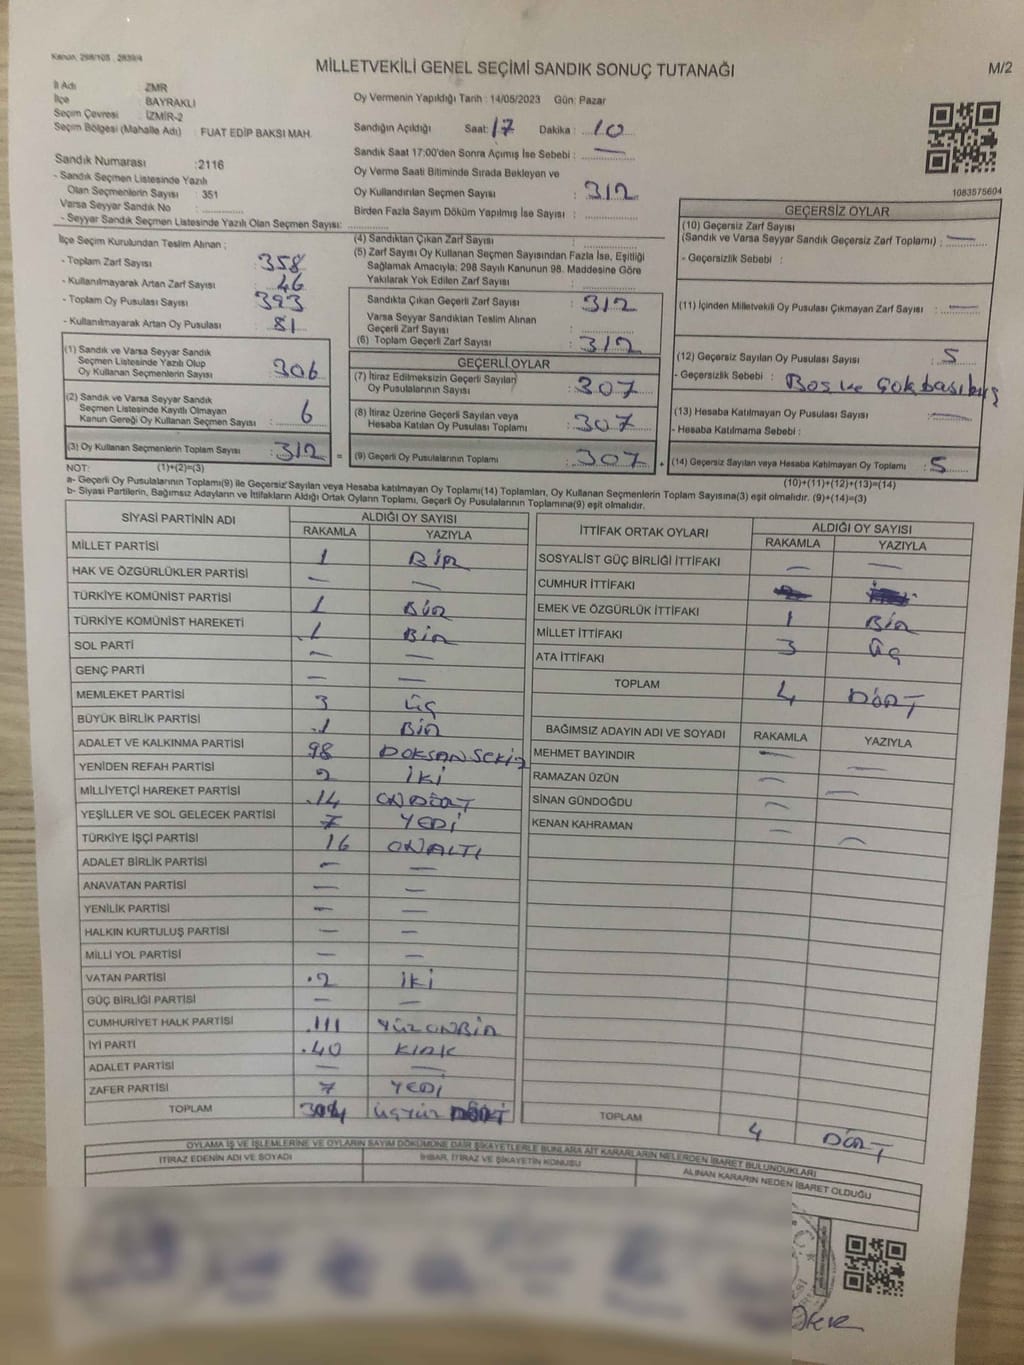 Kanun, 298/105 , 2839/4
MİLLETVEKİLİ GENEL SEÇİMİ SANDIK SONUÇ TUTANAĞI
M/2
İl Adı : ZMR
İlçe : BAYRAKLI
Seçim Çevresi : İZMİR-2
Seçim Bölgesi (Mahalle Adı) : FUAT EDİP BAKSI MAH.
Sandık Numarası : 2116
- Sandık Seçmen Listesinde Yazılı
Olan Seçmenlerin Sayısı : 351
Varsa Seyyar Sandık No :
- Seyyar Sandık Seçmen Listesinde Yazılı Olan Seçmen Sayısı:
Oy Vermenin Yapıldığı Tarih : 14/05/2023 Gün: Pazar
Sandığın Açıldığı Saat: 17 Dakika : 10
Sandık Saat 17:00'den Sonra Açımış İse Sebebi : —
Oy Verme Saati Bitiminde Sırada Bekleyen ve
Oy Kullandırılan Seçmen Sayısı : 312
Birden Fazla Sayım Döküm Yapılmış İse Sayısı :
1083575604
İlçe Seçim Kurulundan Teslim Alınan ;
- Toplam Zarf Sayısı : 358
- Kullanılmayarak Artan Zarf Sayısı : 46
- Toplam Oy Pusulası Sayısı : 393
- Kullanılmayarak Artan Oy Pusulası : 81
(1) Sandık ve Varsa Seyyar Sandık
Seçmen Listesinde Yazılı Olup
Oy Kullanan Seçmenlerin Sayısı : 306
(2) Sandık ve Varsa Seyyar Sandık
Seçmen Listesinde Kayıtlı Olmayan
Kanun Gereği Oy Kullanan Seçmen Sayısı : 6
(3) Oy Kullanan Seçmenlerin Toplam Sayısı : 312 =
(4) Sandıktan Çıkan Zarf Sayısı :
(5) Zarf Sayısı Oy Kullanan Seçmen Sayısından Fazla İse, Eşitliği
Sağlamak Amacıyla; 298 Sayılı Kanunun 98. Maddesine Göre
Yakılarak Yok Edilen Zarf Sayısı :
Sandıkta Çıkan Geçerli Zarf Sayısı : 312
Varsa Seyyar Sandıktan Teslim Alınan
Geçerli Zarf Sayısı :
(6) Toplam Geçerli Zarf Sayısı : 312
GEÇERLİ OYLAR
(7) İtiraz Edilmeksizin Geçerli Sayılan
Oy Pusulalarının Sayısı : 307
(8) İtiraz Üzerine Geçerli Sayılan veya
Hesaba Katılan Oy Pusulası Toplamı : 307
(9) Geçerli Oy Pusulalarının Toplamı : 307 +
GEÇERSİZ OYLAR
(10) Geçersiz Zarf Sayısı
(Sandık ve Varsa Seyyar Sandık Geçersiz Zarf Toplamı) : —
- Geçersizlik Sebebi :
(11) İçinden Milletvekili Oy Pusulası Çıkmayan Zarf Sayısı : —
(12) Geçersiz Sayılan Oy Pusulası Sayısı : 5
- Geçersizlik Sebebi : Boş ve Çok basılmış
(13) Hesaba Katılmayan Oy Pusulası Sayısı : —
- Hesaba Katılmama Sebebi :
(14) Geçersiz Sayılan veya Hesaba Katılmayan Oy Toplamı : 5
NOT: (1)+(2)=(3) (10)+(11)+(12)+(13)=(14)
a- Geçerli Oy Pusulalarının Toplamı(9) ile Geçersiz Sayılan veya Hesaba katılmayan Oy Toplamı(14) Toplamları, Oy Kullanan Seçmenlerin Toplam Sayısına(3) eşit olmalıdır. (9)+(14)=(3)
b- Siyasi Partilerin, Bağımsız Adayların ve İttifakların Aldığı Ortak Oyların Toplamı, Geçerli Oy Pusulalarının Toplamına(9) eşit olmalıdır.
SİYASİ PARTİNİN ADI ALDIĞI OY SAYISI
RAKAMLA YAZIYLA
MİLLET PARTİSİ 1 Bir
HAK VE ÖZGÜRLÜKLER PARTİSİ — —
TÜRKİYE KOMÜNİST PARTİSİ 1 Bir
TÜRKİYE KOMÜNİST HAREKETİ 1 Bir
SOL PARTİ — —
GENÇ PARTİ — —
MEMLEKET PARTİSİ 3 üç
BÜYÜK BİRLİK PARTİSİ 1 Bir
ADALET VE KALKINMA PARTİSİ 98 DOKSAN SEKİZ
YENİDEN REFAH PARTİSİ 2 İKİ
MİLLİYETÇİ HAREKET PARTİSİ 14 ONDÖRT
YEŞİLLER VE SOL GELECEK PARTİSİ 7 YEDİ
TÜRKİYE İŞÇİ PARTİSİ 16 ONALTI
ADALET BİRLİK PARTİSİ — —
ANAVATAN PARTİSİ — —
YENİLİK PARTİSİ — —
HALKIN KURTULUŞ PARTİSİ — —
MİLLİ YOL PARTİSİ — —
VATAN PARTİSİ 2 İKİ
GÜÇ BİRLİĞİ PARTİSİ — —
CUMHURİYET HALK PARTİSİ 111 YÜZONBİR
İYİ PARTİ 40 KIRK
ADALET PARTİSİ — —
ZAFER PARTİSİ 7 YEDİ
TOPLAM üçyüz
İTTİFAK ORTAK OYLARI ALDIĞI OY SAYISI
RAKAMLA YAZIYLA
SOSYALİST GÜÇ BİRLİĞİ İTTİFAKI — —
CUMHUR İTTİFAKI
EMEK VE ÖZGÜRLÜK İTTİFAKI 1 Bir
MİLLET İTTİFAKI 3 üç
ATA İTTİFAKI
TOPLAM 4 DÖRT
BAĞIMSIZ ADAYIN ADI VE SOYADI RAKAMLA YAZIYLA
MEHMET BAYINDIR — —
RAMAZAN ÜZÜN — —
SİNAN GÜNDOĞDU —
KENAN KAHRAMAN — —
TOPLAM 4 DÖRT
OYLAMA İŞ VE İŞLEMLERİNE VE OYLARIN SAYIM DÖKÜMÜNE DAİR ŞİKAYETLERLE BUNLARA AİT KARARLARIN NELERDEN İBARET BULUNDUKLARI
İTİRAZ EDENİN ADI VE SOYADI İHBAR, İTİRAZ VE ŞİKAYETİN KONUSU ALINAN KARARIN NEDEN İBARET OLDUĞU